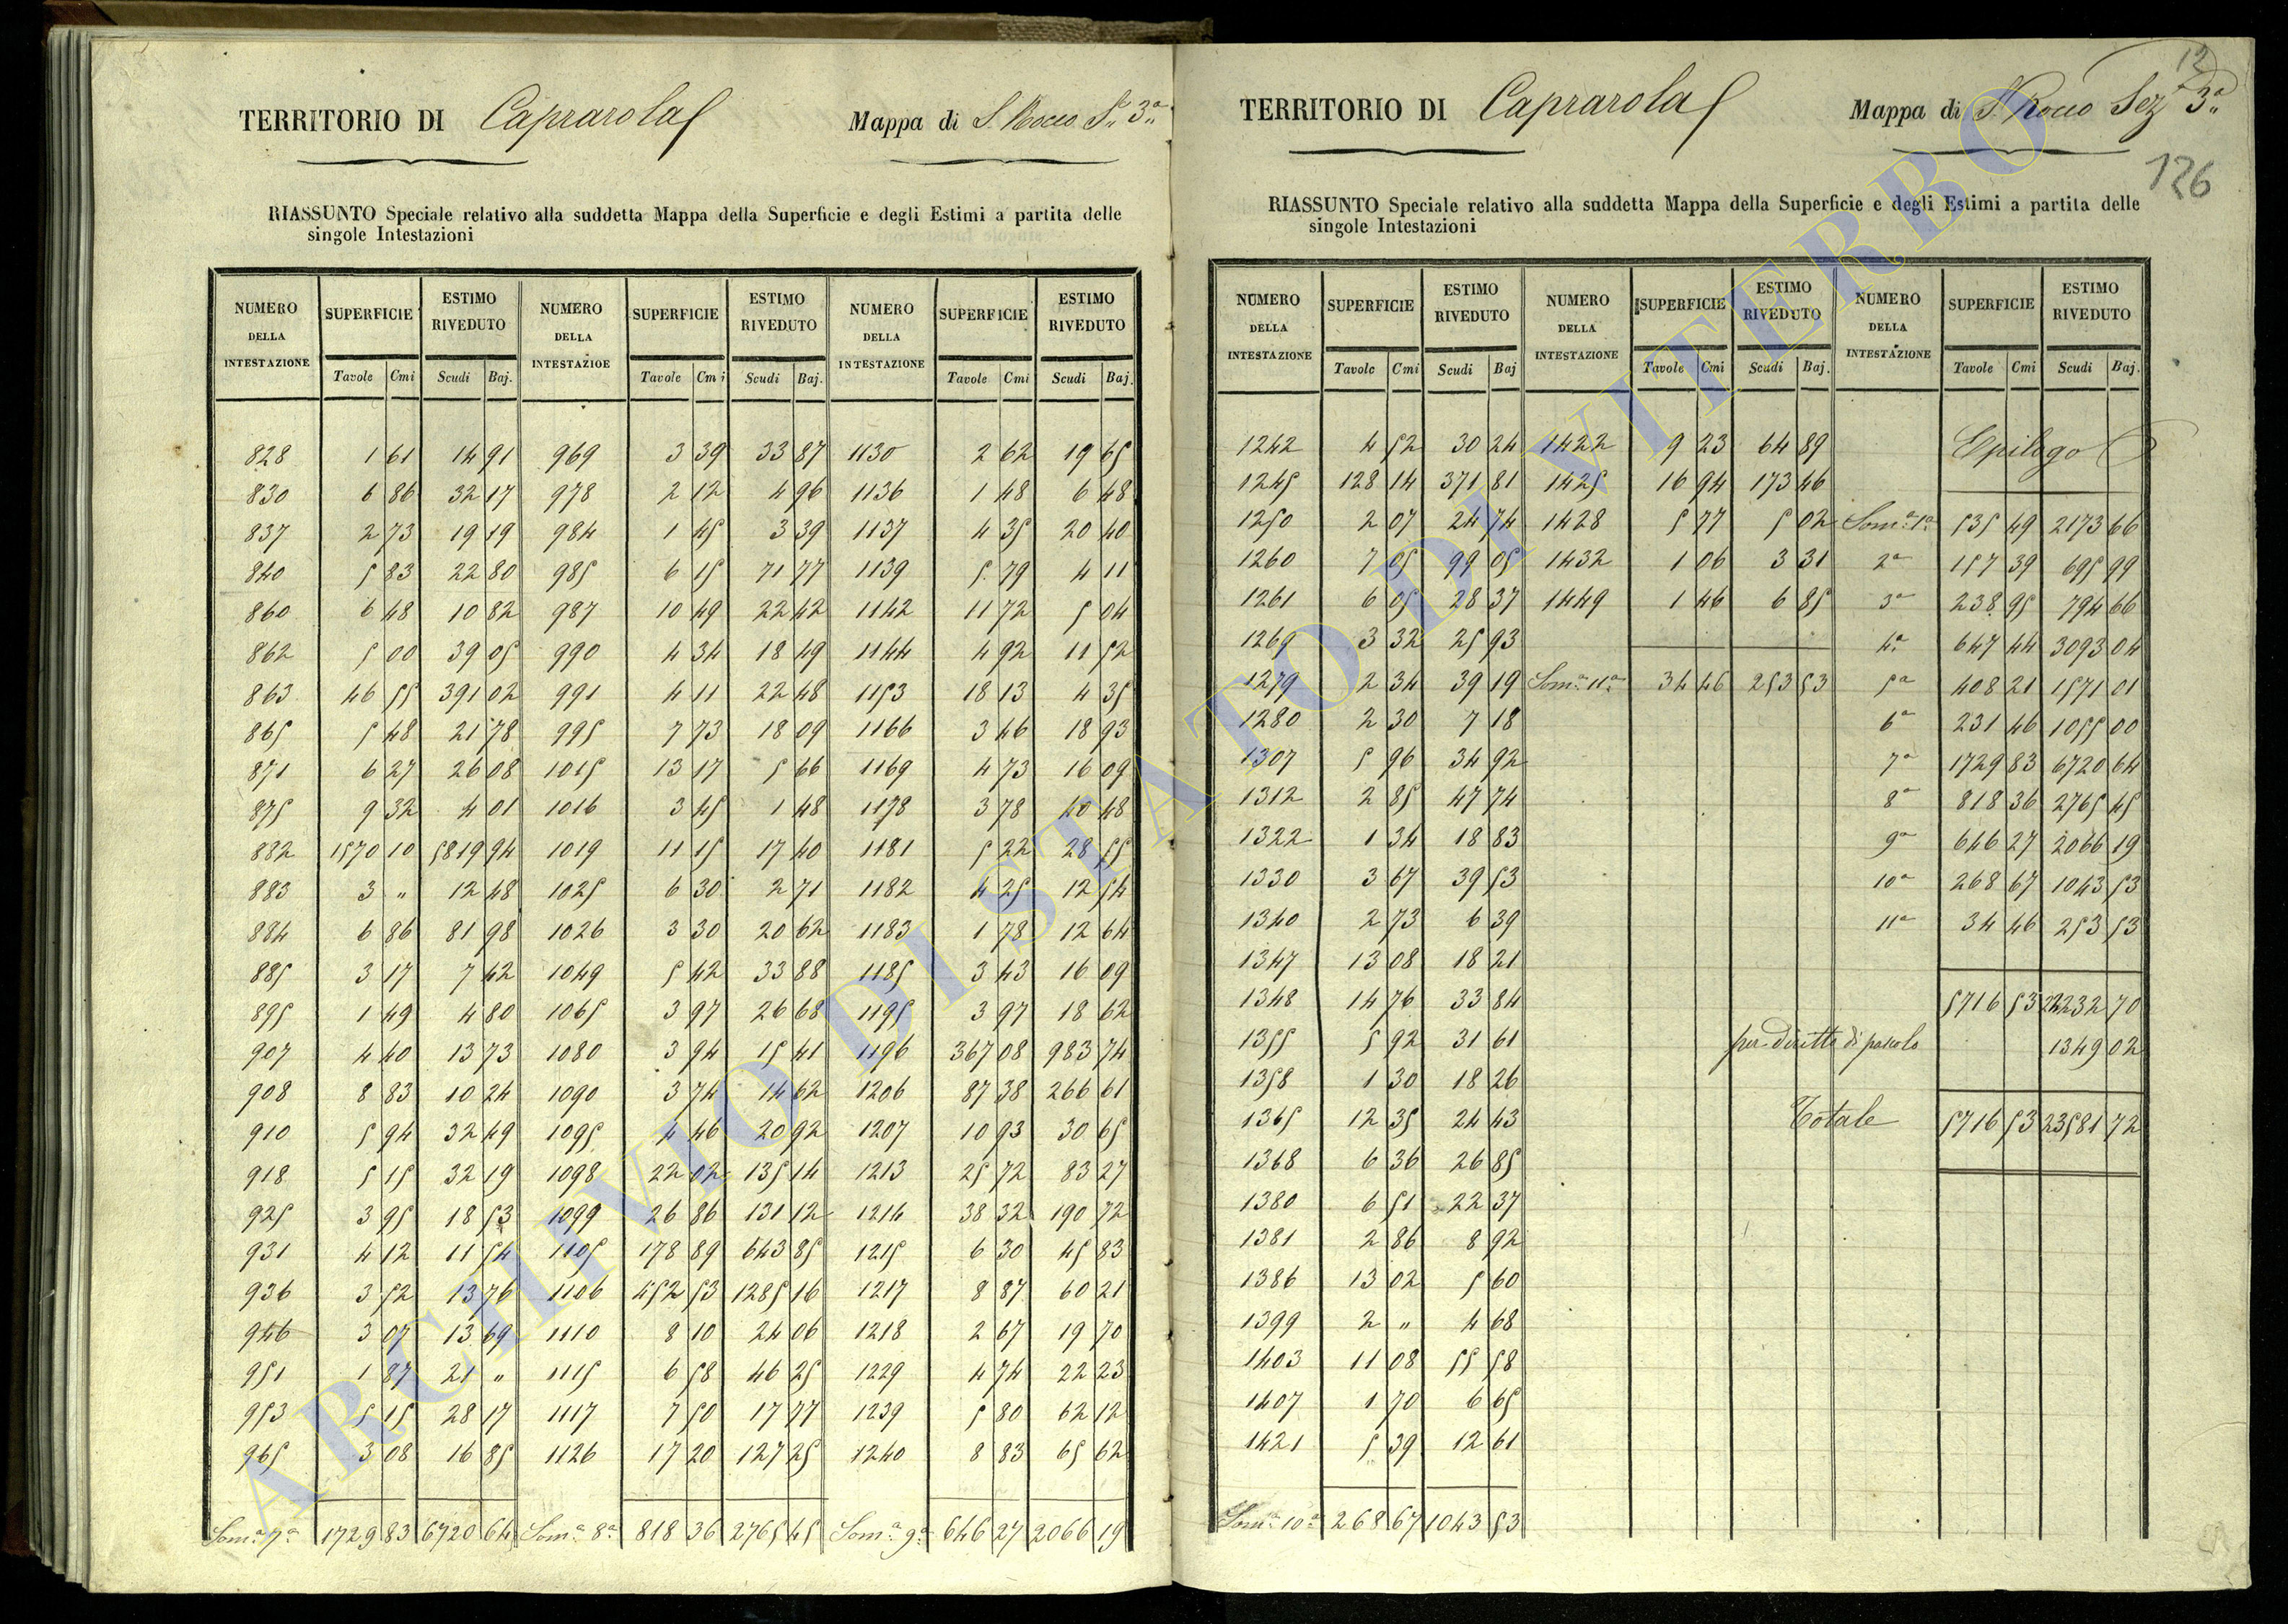 TERRITORIO DI Caprarola Mappa di S. Rocco S. 3ª
RIASSUNTO Speciale relativo alla suddetta Mappa della Superficie e degli Estimi a partita delle
singole Intestazioni
NUMERO DELLA INTESTAZIONE SUPERFICIE ESTIMO RIVEDUTO NUMERO DELLA INTESTAZIOE SUPERFICIE ESTIMO RIVEDUTO NUMERO DELLA INTESTAZIONE SUPERFICIE ESTIMO RIVEDUTO
Tavole Cmi Scudi Baj. Tavole Cmi Scudi Baj. Tavole Cmi Scudi Baj.
828 1 61 14 91 969 3 39 33 87 1130 2 62 19 65
830 6 86 32 17 978 2 12 4 96 1136 1 48 6 48
837 2 73 19 19 984 1 45 3 39 1137 4 35 20 40
840 5 83 22 80 985 6 15 71 77 1139 5 79 4 11
860 6 48 10 82 987 10 49 22 42 1142 11 72 5 04
862 5 00 39 05 990 4 34 18 49 1144 4 92 11 52
863 46 55 391 02 991 4 11 22 48 1153 18 13 4 35
865 5 48 21 78 995 7 73 18 09 1166 3 46 18 93
871 6 27 26 08 1015 13 17 5 66 1169 4 73 16 09
875 9 32 4 01 1016 3 45 1 48 1178 3 78 40 48
882 1570 10 5819 94 1019 11 15 17 40 1181 5 22 28 55
883 3 " 12 48 1025 6 30 2 71 1182 4 25 12 54
884 6 86 81 98 1026 3 30 20 62 1183 1 78 12 64
885 3 17 7 42 1049 5 42 33 88 1185 3 43 16 09
895 1 49 4 80 1065 3 97 26 68 1195 3 97 18 62
907 4 40 13 73 1080 3 94 15 41 1196 367 08 983 74
908 8 83 10 24 1090 3 74 14 62 1206 87 38 266 61
910 5 94 32 49 1095 4 46 20 92 1207 10 93 30 65
918 5 15 32 19 1098 22 02 135 14 1213 25 72 83 27
925 3 95 18 53 1099 26 86 131 12 1214 38 32 190 72
931 4 12 11 54 1105 178 89 643 85 1215 6 30 45 83
936 3 52 13 76 1106 452 53 1285 16 1217 8 87 60 21
946 3 07 13 69 1110 8 10 24 06 1218 2 67 19 70
951 1 87 21 " 1115 6 58 46 25 1229 4 74 22 23
953 5 15 28 17 1117 7 50 17 77 1239 5 80 62 12
965 3 08 16 85 1126 17 20 127 25 1240 8 83 65 62
Som.ª 7ª 1729 83 6720 64 Som.ª 8ª 818 36 2765 45 Som.ª 9ª 646 27 2066 19
12
TERRITORIO DI Caprarola Mappa di S. Rocco Sez 3ª
126
RIASSUNTO Speciale relativo alla suddetta Mappa della Superficie e degli Estimi a partita delle
singole Intestazioni
NUMERO DELLA INTESTAZIONE SUPERFICIE ESTIMO RIVEDUTO NUMERO DELLA INTESTAZIONE SUPERFICIE ESTIMO RIVEDUTO NUMERO DELLA INTESTAZIONE SUPERFICIE ESTIMO RIVEDUTO
Tavole Cmi Scudi Baj Tavole Cmi Scudi Baj. Tavole Cmi Scudi Baj.
1242 4 52 30 24 1422 9 23 64 89 Epilogo
1245 128 14 371 81 1425 16 94 173 46
1250 2 07 24 74 1428 5 77 5 02 Som.ª 1ª 535 49 2173 66
1260 7 05 99 05 1432 1 06 3 31 2ª 157 39 695 99
1261 6 05 28 37 1449 1 46 6 85 3ª 238 95 794 66
1269 3 32 25 93 4ª 647 44 3093 04
1279 2 34 39 19 Som.ª 11ª 34 46 253 53 5ª 408 21 1571 01
1280 2 30 7 18 6ª 231 46 1055 00
1307 5 96 34 92 7ª 1729 83 6720 64
1312 2 85 47 74 8ª 818 36 2765 45
1322 1 34 18 83 9ª 646 27 2066 19
1330 3 67 39 53 10ª 268 67 1043 53
1340 2 73 6 39 11ª 34 46 253 53
1347 13 08 18 21
1348 14 76 33 84 5716 53 22232 70
1355 5 92 31 61 per diritto di pascolo 1349 02
1358 1 30 18 26
1365 12 35 24 43 Totale 5716 53 23581 72
1368 6 36 26 85
1380 6 51 22 37
1381 2 86 8 92
1386 13 02 5 60
1399 2 " 4 68
1403 11 08 55 58
1407 1 70 6 65
1421 5 39 12 61
Som.ª 10ª 268 67 1043 53
ARCHIVIO DI STATO DI VITERBO